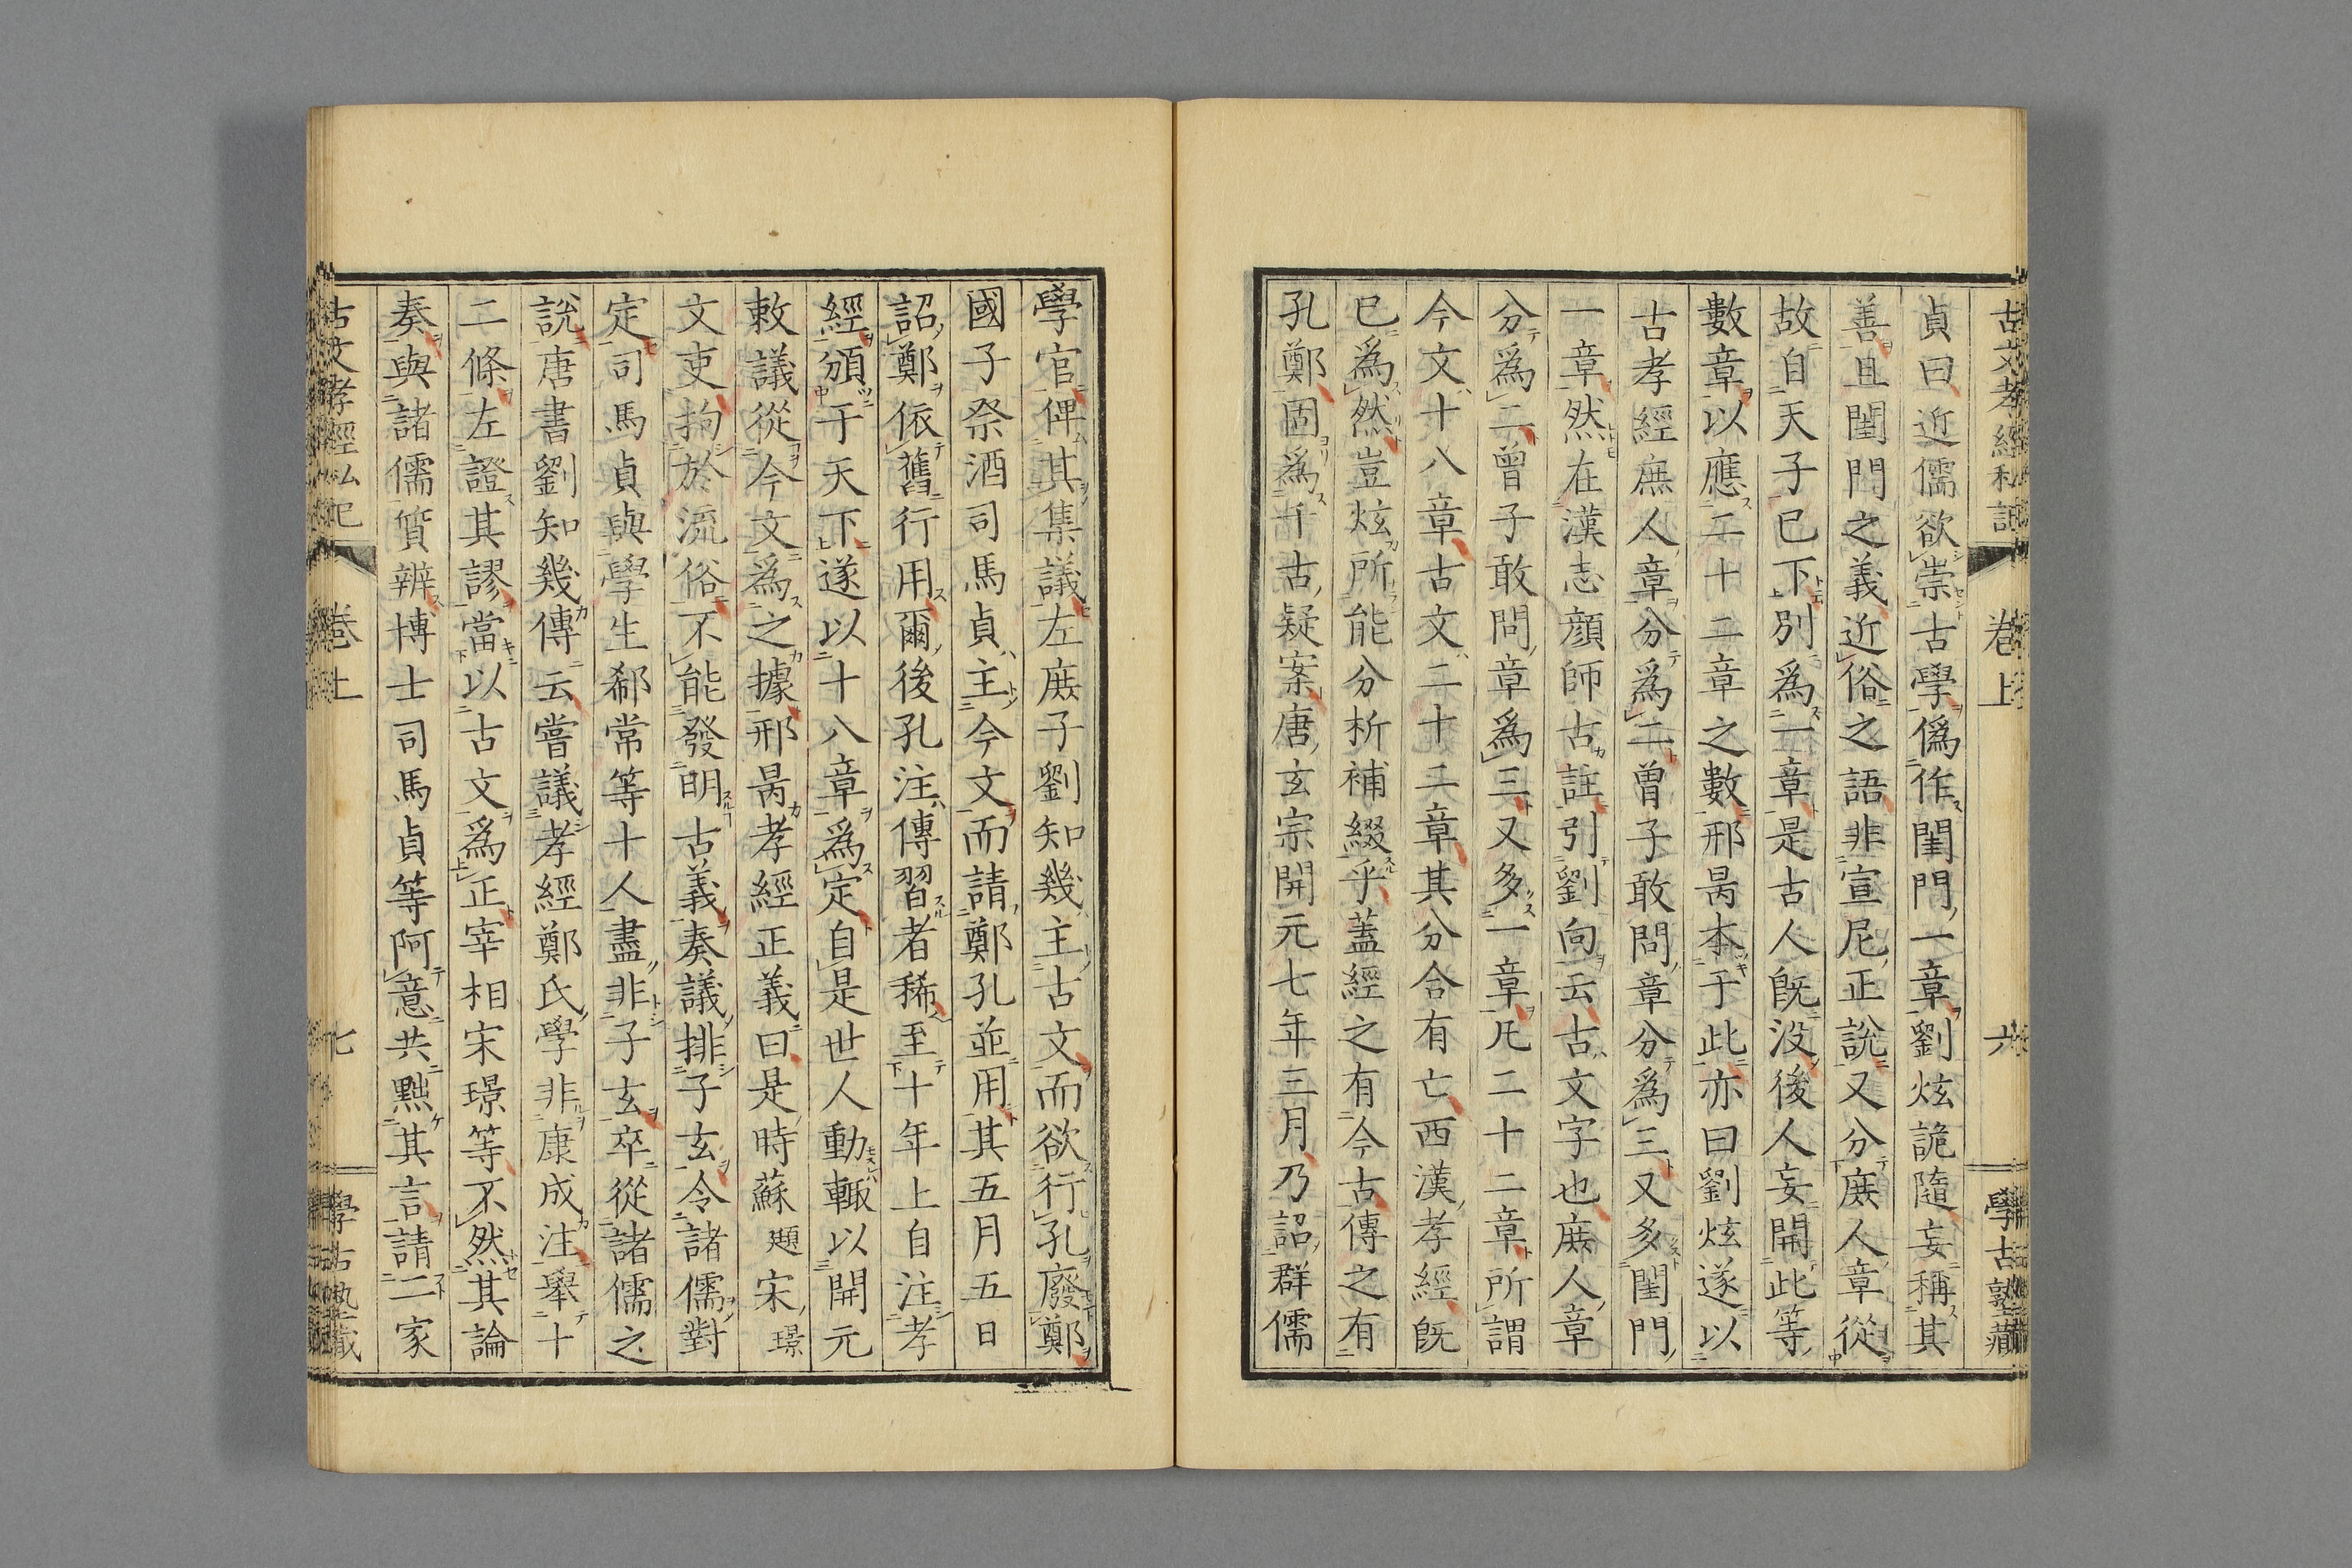 古文孝經私記 卷上 六 學古塾藏
貞曰近儒欲崇古學僞作閨門一章劉炫詭隨妄稱其
善且閨門之義近俗之語非宣尼正說又分庶人章從
故自天子已下別爲一章是古人既沒後人妄開此等
數章以應二十二章之數邢昺本于此亦曰劉炫遂以
古孝經庶人章分爲二曾子敢問章分爲三又多閨門
一章然在漢志顔師古註引劉向云古文字也庶人章
分爲二曾子敢問章爲三又多一章凡二十二章所謂
今文十八章古文二十二章其分合有亡西漢孝經既
已爲然豈炫所能分析補綴乎蓋經之有今古傳之有
孔鄭固爲千古疑案唐玄宗開元七年三月乃詔群儒
學官俾其集議左庶子劉知幾主古文而欲行孔廢鄭
國子祭酒司馬貞主今文而請鄭孔並用其五月五日
詔鄭依舊行用爾後孔注傳習者稀至十年上自注孝
經頒于天下遂以十八章爲定自是世人動輙以開元
敕議從今文爲之據邢昺孝經正義曰是時蘇頲宋璟
文吏拘於流俗不能發明古義奏議排子玄令諸儒對
定司馬貞與學生郗常等十人盡非子玄卒從諸儒之
說唐書劉知幾傳云嘗議孝經鄭氏學非康成注舉十
二條左證其謬當以古文爲正宰相宋璟等不然其論
奏與諸儒質辨博士司馬貞等阿意共黜其言請二家
古文孝經私記 卷上 七 學古塾藏